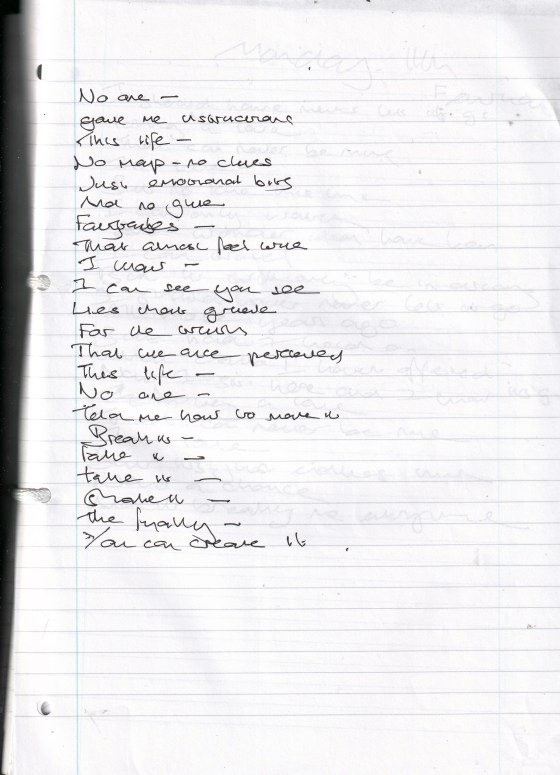 No one –
gave me instructions
This life –
No map – no clues
Just emotional bits
And no glue
Fairytales –
That almost feel true
I want –
I can see you see
Lies that grieve
For the
That we are
This life –
No one –
Told me how to make it
Break it –
Fake it –
take it –
Shake it –
The finally –
You can create it.